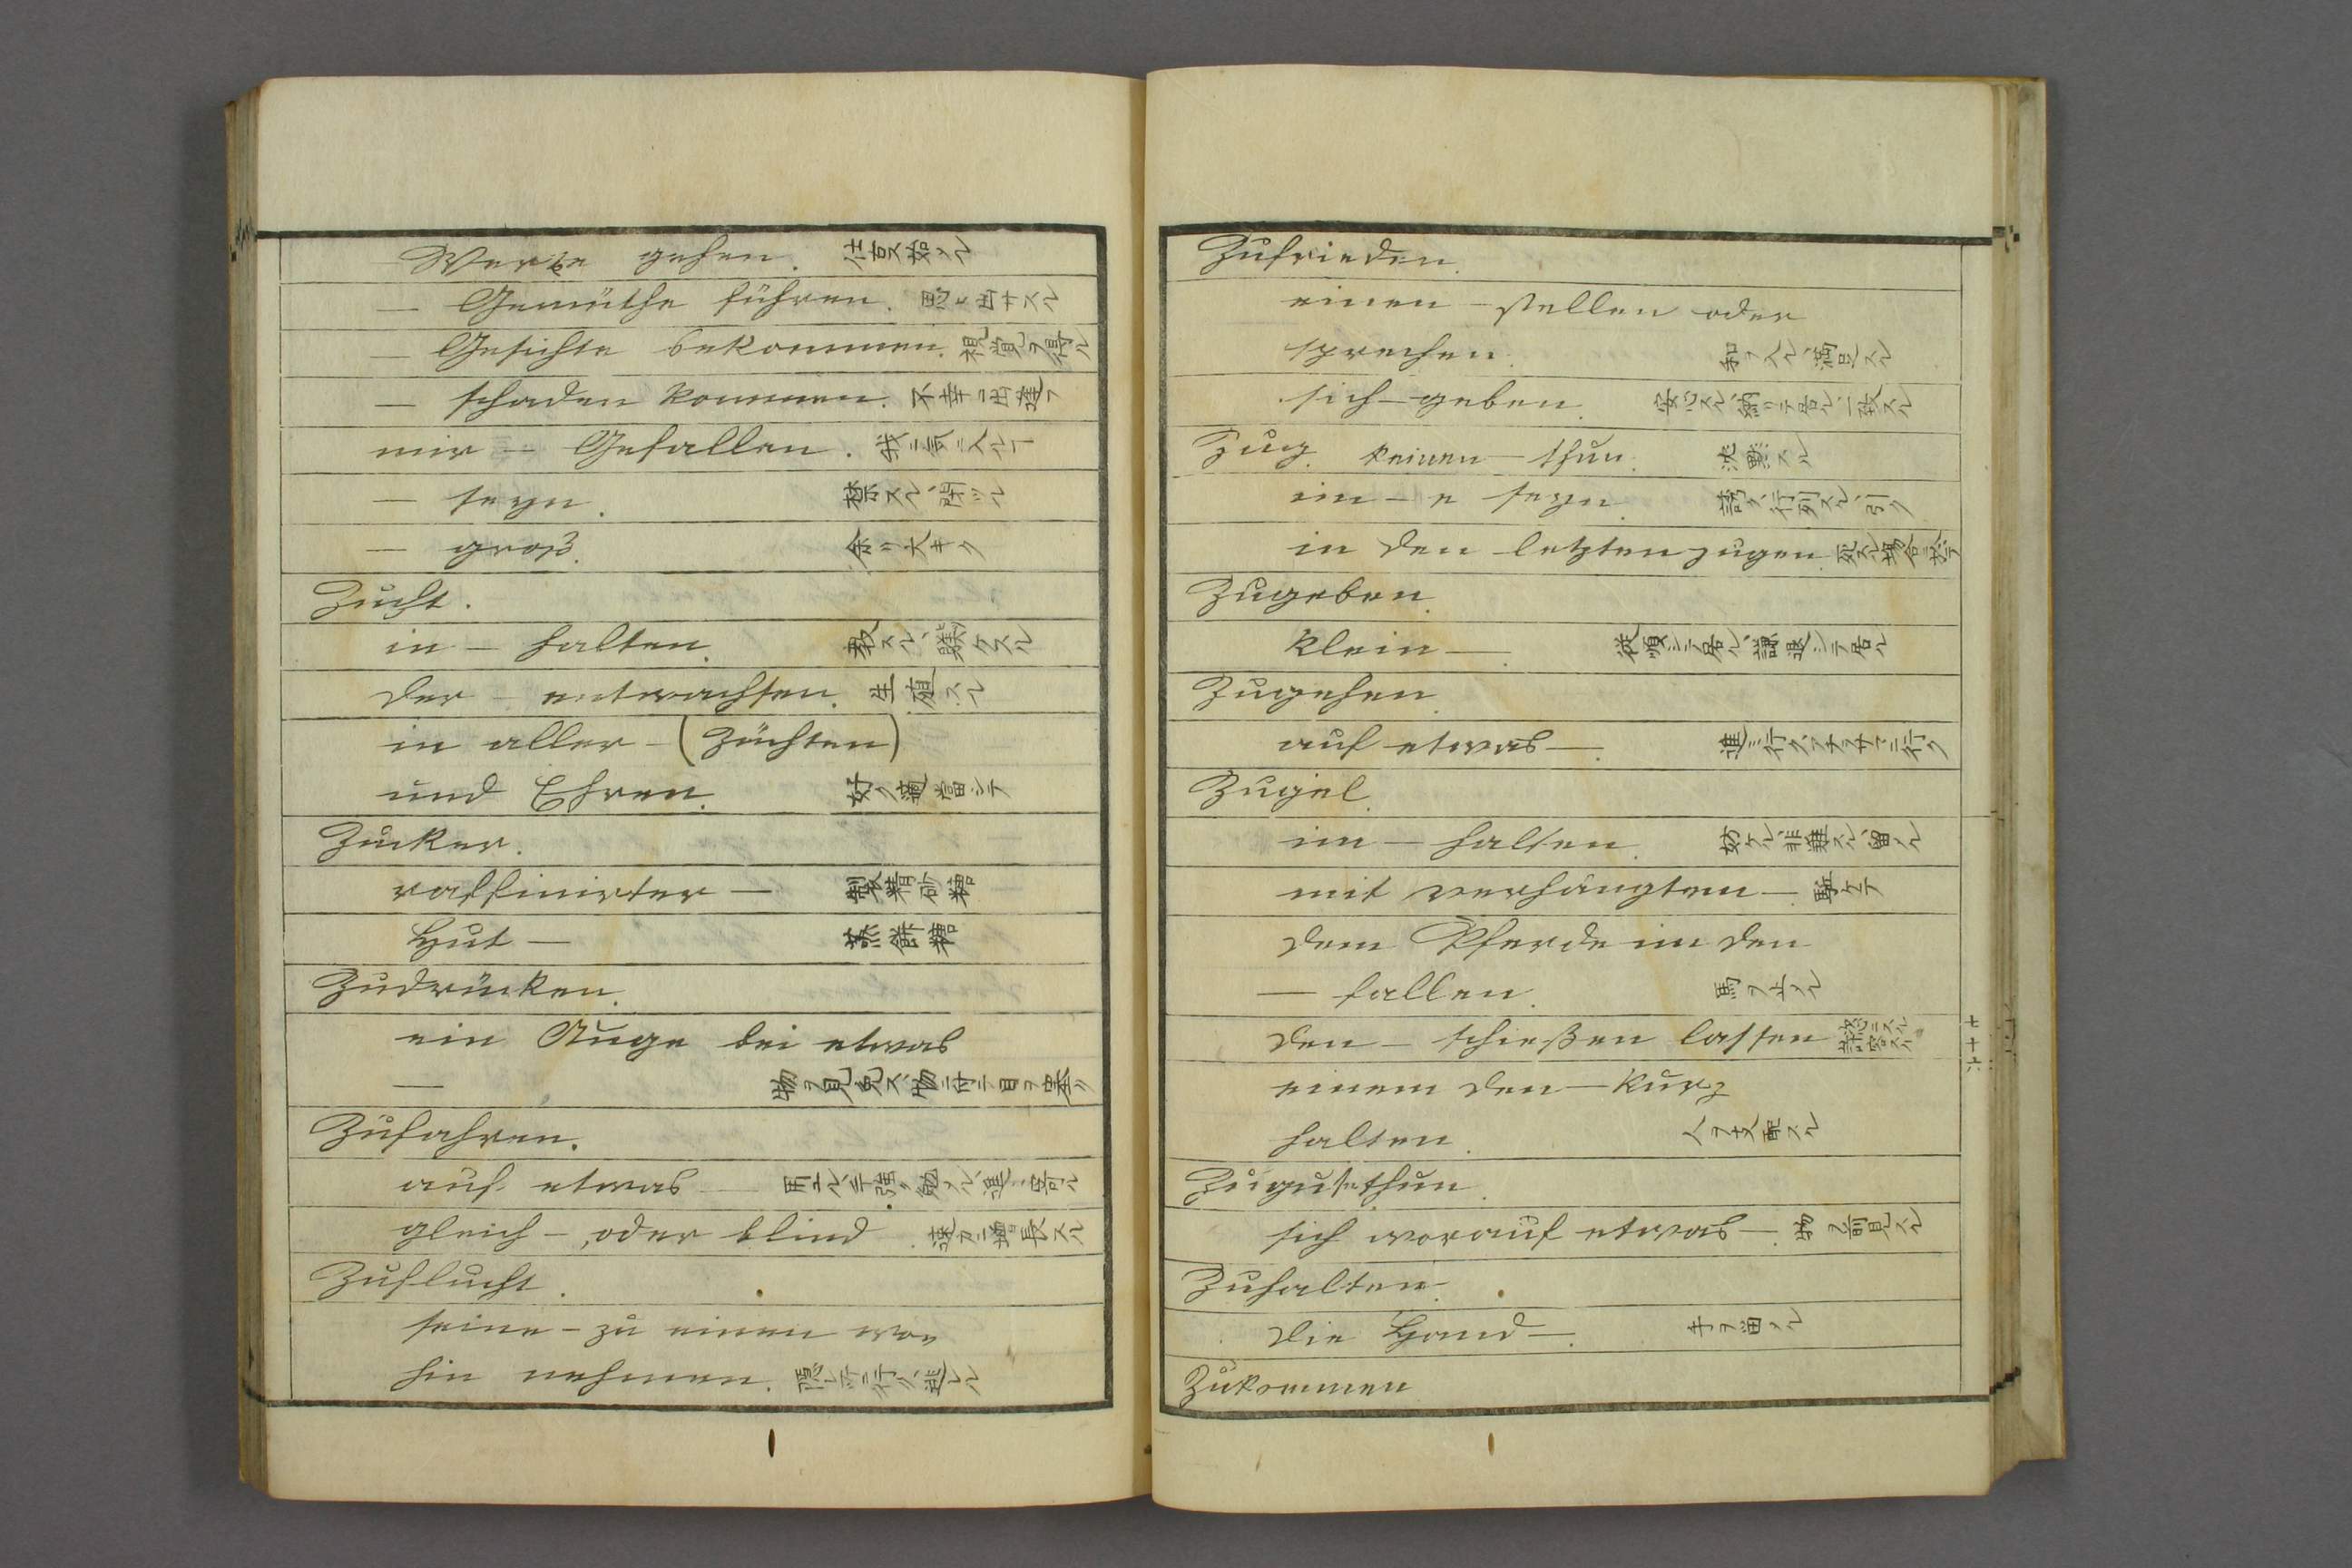 Werke gehen. 仕叓ヲ始ル
— Gemüthe führen. 思ヒ出サスル
— Gesichte bekommen. 視覚ヲ得ル
— schaden kommen. 不幸ニ出逢フ
mir — Gefallen. 我ニ気ニ入ル
— seyn. 禁スル、閉ツル
— groß. 余リ大キク
Zucht.
in — halten. 教スル、躾ケスル
der — entwachsen. 生殖スル
in aller — (Züchten)
und Ehren. 好ク適當シテ
Zucker.
raffinirter — 製精砂糖
Hut — 蒸餅糖
Zudrücken.
ein Auge bei etwas
— 物ヲ見免ス、物ニ付テ目ヲ塞ク
Zufahren.
auf etwas —
gleich —, oder blind. 速カニ増長スル
Zuflucht.
seine — zu einen wo
hin nehmen. 逃ル
Zufrieden.
einen — stellen oder
sprechen. 満足スル
sich — geben. 安心スル、一致スル
Zug. keinen — thun. 沈黙スル
im — e seyn. 行列スル、引ク
in den letzten zugen. 死スル場合ニ
Zugeben.
klein —. 従順シテ居ル、謙退シテ居ル
Zugehen.
auf etwas —. 進ミ行ク
Zugel.
im — halten. 妨ケル、非難スル、留ル
mit verhängtem —. 駈ケテ
dem Pferde im den
— fallen. 馬ヲ止ル
den — schießen lassen
einem den — kurz
halten. 人ヲ支配スル
Zugutethun.
sich worauf etwas —.
Zuhalten.
die Hand —. 手ヲ留ル
Zukommen
七十六